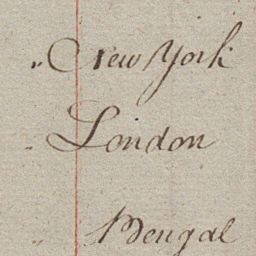 „ New York
„ London
„ Bengal